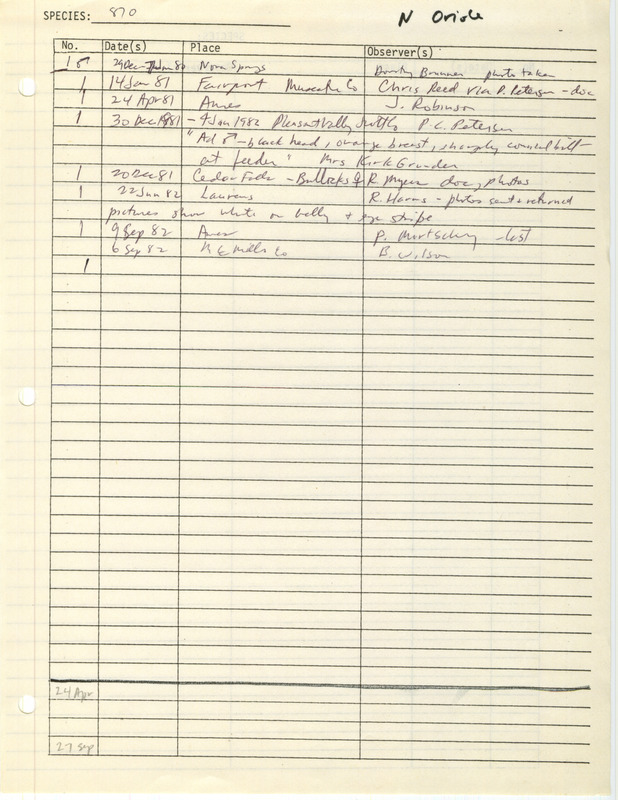 SPECIES: 870 N Oriole
No. Date(s) Place Observer(s)
1♂ 29Dec- Jan 80 Nora Springs Dorothy Brunner photo taken
1 14 Jan 81 Fairport Muscatine Co Chris Reed via P. Petersen - doc
1 24 Apr 81 Ames J. Robinson
1 30 Dec 1981 - 4 Jan 1982 Pleasant Valley Scott Co P.C. Petersen
"Ad ♂ - black head, orange breast, sharply conical bill
at feeder" Mrs Kirk Grunder
1 20 Dec 81 Cedar Falls - Bullocks ♀ R. Myers doc, photos
1 22 Jun 82 Laurens R. Harms - photos sent & returned
pictures show white on belly + eye stripe
1 9 Sep 82 Ames P. - last
6 Sep 82 N E Mills Co B. Wilson
1
24 Apr
27 Sep